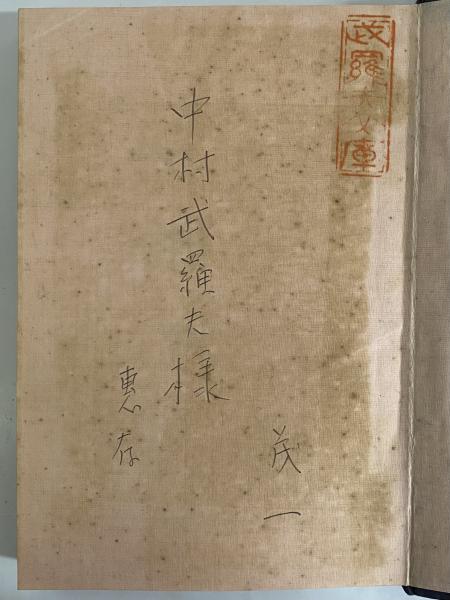 武羅夫文庫
茂一
中村武羅夫様
恵存